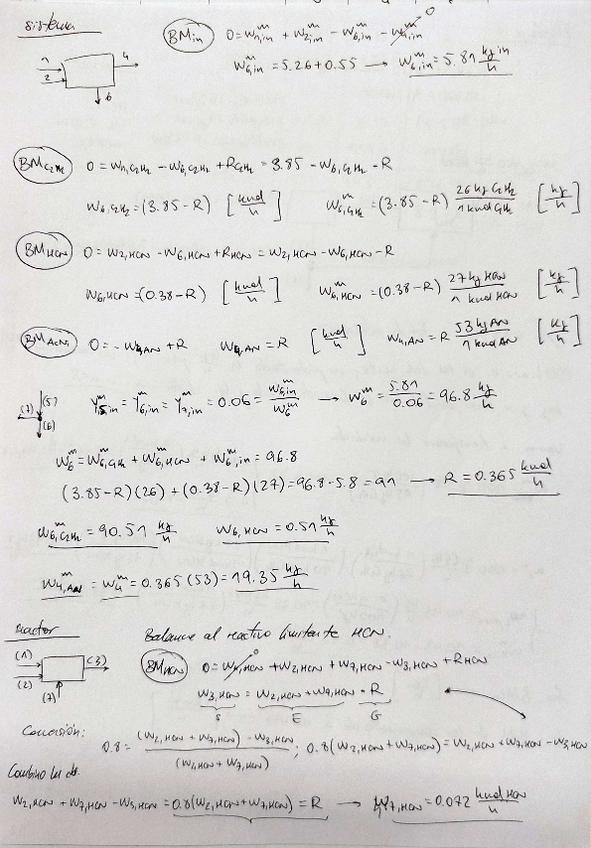 sistema
1 2 4 6
BM in 0 = w^m_1,in + w^m_2,in - w^m_6,in - w^m_4,in 0
w^m_6,in = 5.26 + 0.55 → w^m_6,in = 5.81 kg in/h
BM C2H2 0 = w1,C2H2 - w6,C2H2 + R C2H2 = 3.85 - w6,C2H2 - R
w6,C2H2 = (3.85 - R) [kmol/h] w^m_6,C2H2 = (3.85 - R) 26 kg C2H2/1 kmol C2H2 [kg/h]
BM HCN 0 = w2,HCN - w6,HCN + R HCN = w2,HCN - w6,HCN - R
w6,HCN = (0.38 - R) [kmol/h] w^m_6,HCN = (0.38 - R) 27 kg HCN/1 kmol HCN [kg/h]
BM AcNi 0 = - w4,AN + R w4,AN = R [kmol/h] w4,AN = R 53 kg AN/1 kmol AN [kg/h]
(7) (5) (6) y^m_5,in = y^m_6,in = y^m_7,in = 0.06 = w^m_6,in/w^m_6 → w^m_6 = 5.81/0.06 = 96.8 kg/h
w^m_6 = w^m_6,C2H2 + w^m_6,HCN + w^m_6,in = 96.8
(3.85 - R)(26) + (0.38 - R)(27) = 96.8 - 5.8 = 91 → R = 0.365 kmol/h
w^m_6,C2H2 = 90.51 kg/h w^m_6,HCN = 0.51 kg/h
w^m_4,AN = w^m_4 = 0.365 (53) = 19.35 kg/h
reactor Balance al reactivo limitante HCN.
(1) (2) (3) (7) BM HCN 0 = w1,HCN 0 + w2,HCN + w7,HCN - w3,HCN + R HCN
w3,HCN = w2,HCN + w7,HCN - R
S E G
Conversión: 0.8 = (w2,HCN + w7,HCN) - w3,HCN/(w2,HCN + w7,HCN) ; 0.8(w2,HCN + w7,HCN) = w2,HCN + w7,HCN - w3,HCN
Combino las ds.
w2,HCN + w7,HCN - w3,HCN = 0.8(w2,HCN + w7,HCN) = R → w7,HCN = 0.072 kmol HCN/h